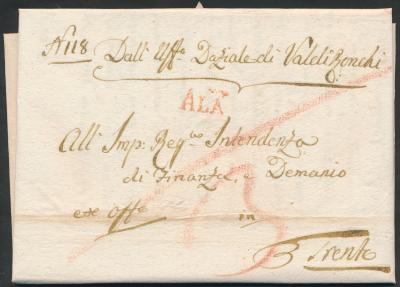 N 118 Dall' Uffo Daziale di Valdi Ronchi
ALA
All' Imp: Rego Intendenza
di Finanza, e Demanio
ex offo in
Trento